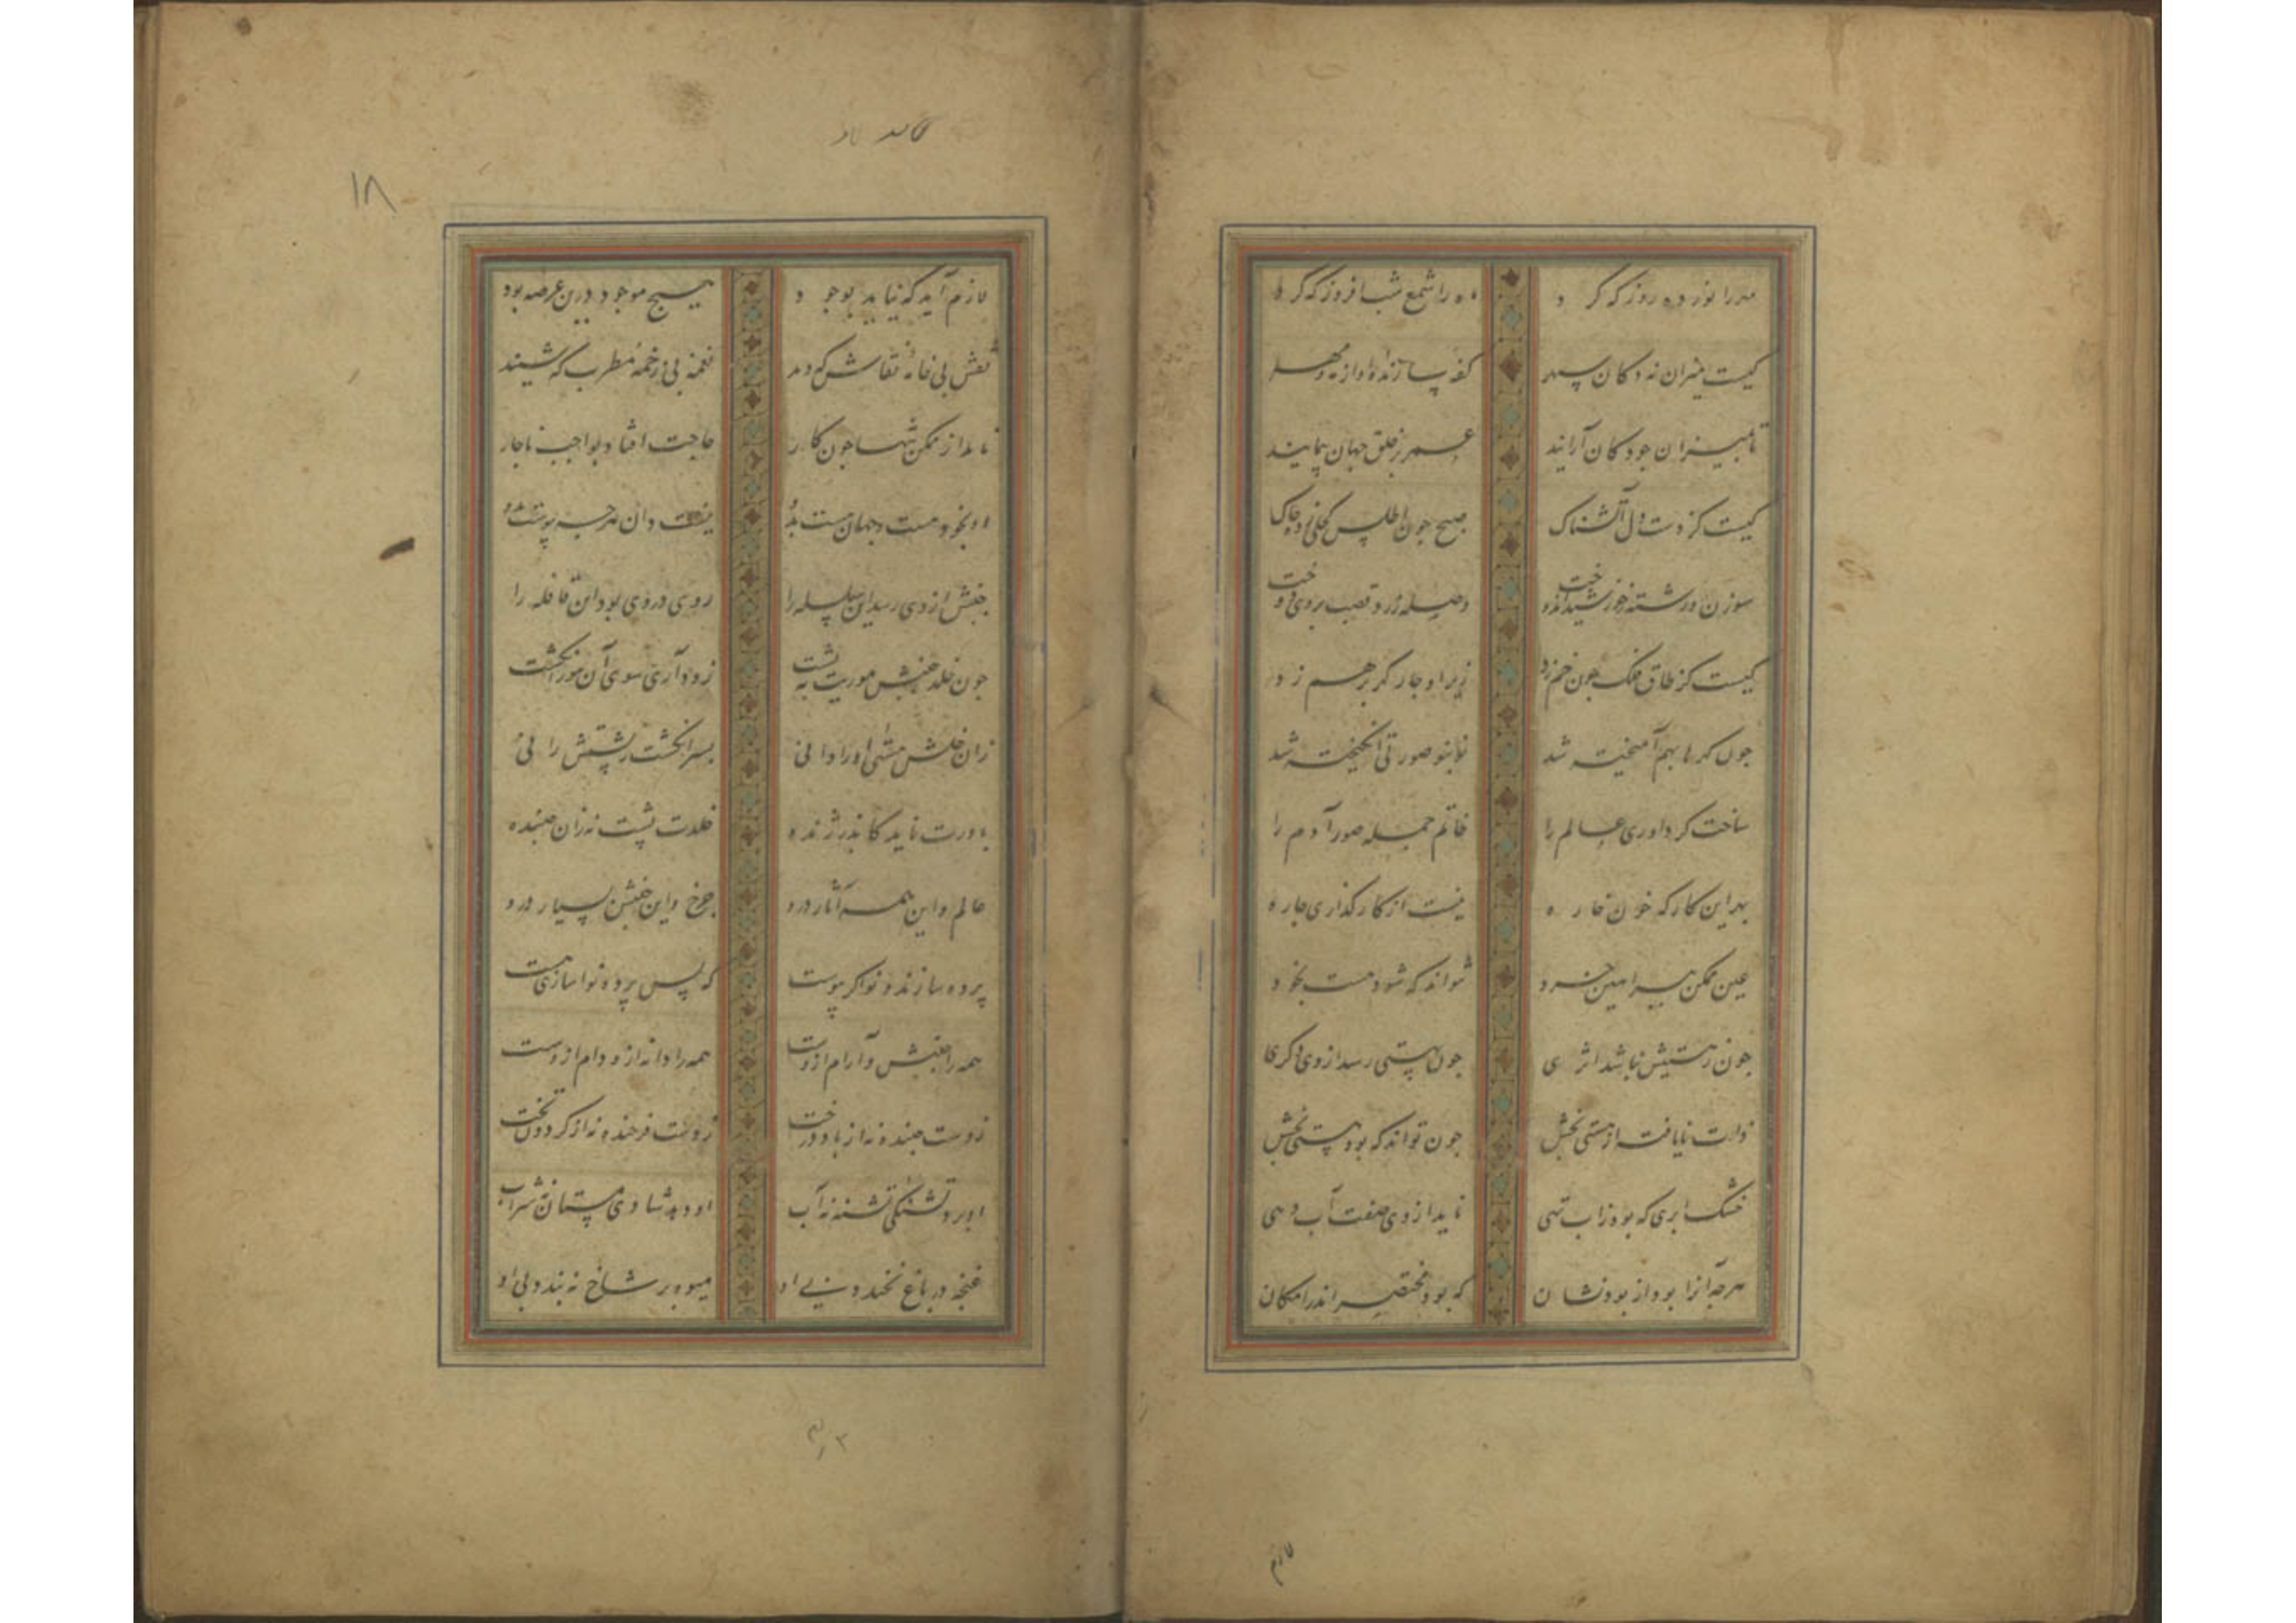 مهر را نور ده روز که کرد
ماه را شمع شب افروز که کرد
کیست میزان نه دکان سپهر
کفه سازنده او از مه و مهر
تا بمیزان جو دکان آرایند
عمر بر خلق جهان پیمایند
کیست کز دست دل آتشناک
صبح جون اطلس کحلی زده جاک
سوزن و رشته ز خورشید اندوخت
وصله زرد قصب بروی دوخت
کیست کز طاق فلک جون خم زد
زیر او جار کهر بر هم زد
جون کهرها بهم آمیخته شد
نو بنو صورتی انکیخته شد
ساخت کرد آوری عالم را
خاتم جمله صور آدم را
بهر این کارکه خون خاره
نیست از کارکذاری جاره
عین ممکن ببراهین خرد
نتواند که شود هست بخود
جون ز هستیش نباشد اثری
جون بهستی رسد از وی دکری
ذات نایافته از هستی بخش
جون تواند که بود هستی بخش
خشک ابری که بود ز اب تهی
ناید از وی صفت آب دهی
هرجه آنرا بود از بود نشان
که بود منحصر اندر امکان
لازم
۱۸
لازم آید که نیاید بوجود
هیج موجود درین عرصه بود
نقش بی خامه نقاش که دید
نغمه بی زخمه مطرب که شنید
ناید از ممکن تنها جون کار
حاجت افتاد بواجب ناجار
او بخود هست و جهان هست بدو
نیست دان هرجه نه پیوست بدو
جنبش از وی رسد این سلسله را
روی در وی بود این قافله را
جون خلد جنبش موریت به پشت
زود آری سوی آن مور انکشت
زان خلش منشی او را دانی
بسر انکشت ز پشتش رانی
باورت ناید کاندر ژنده
خلدت پشت نه زان جنبنده
عالم و این همه آثار درو
جرخ و این جنبش بسیار درو
پرده سازنده نواکر پوست
که پس پرده نواسازی هست
همه را جنبش و آرام ازوست
همه را دانه ازو دام ازوست
زوست جنبده نه از باد درخت
زوست فرخنده نه از کردون بخت
او برد تشنکی تشنه نه آب
او دهد شادی مستان نه شراب
غنجه در باغ نخندد بی او
میوه بر شاخ نه بندد بی او